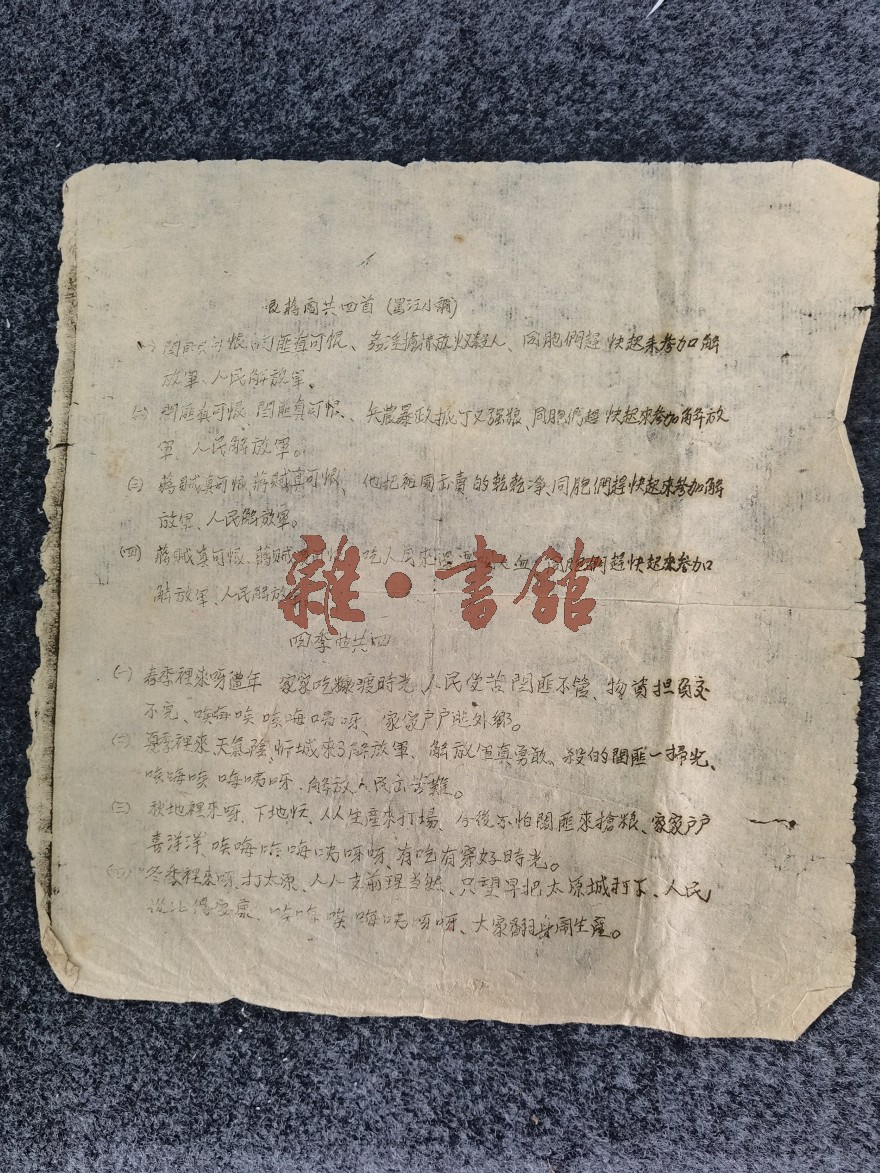 恨蔣閻共四首（黑江小調）
閻匪真可恨、閻匪真可恨、姦淫搶掠放火殺人、同胞們趕快起來參加解
放軍、人民解放軍。
(二) 閻匪真可恨、閻匪真可恨、兵農暴政抓丁又强狼、同胞們趕快起來參加解放
軍、人民解放軍。
(三) 蔣賊真可恨、蔣賊真可恨、他把祖國出賣的乾乾净、同胞們趕快起來參加解
放軍、人民解放軍。
(四) 蔣賊真可恨、蔣賊 可恨 吃人 血 同胞們趕快起來參加
解放軍、人民解放
雜·書館
四季曲共四
(一) 春季裡來呀 年 家家吃糠渡時光、人民受苦閻匪不管、物資担負交
不完、唉海唉唉海喏呀、家家戶戶逃外鄉。
夏季裡來、天氣 、忻城來了解放軍、解放軍真勇敢、殺的閻匪一掃光、
唉海唉海喏呀、解放人民出苦難。
(三) 秋地裡來呀、下地忙、人人生産來打場、今後不怕閻匪來搶粮、家家戶戶
喜洋洋、唉海 海喏呀呀、有吃有穿好時光。
(四) 冬季裡來呀、打太原、人人支前理当然、只望早把太原城打下、人民
得安康、唉 唉海喏呀呀、大家翻身鬧生產。